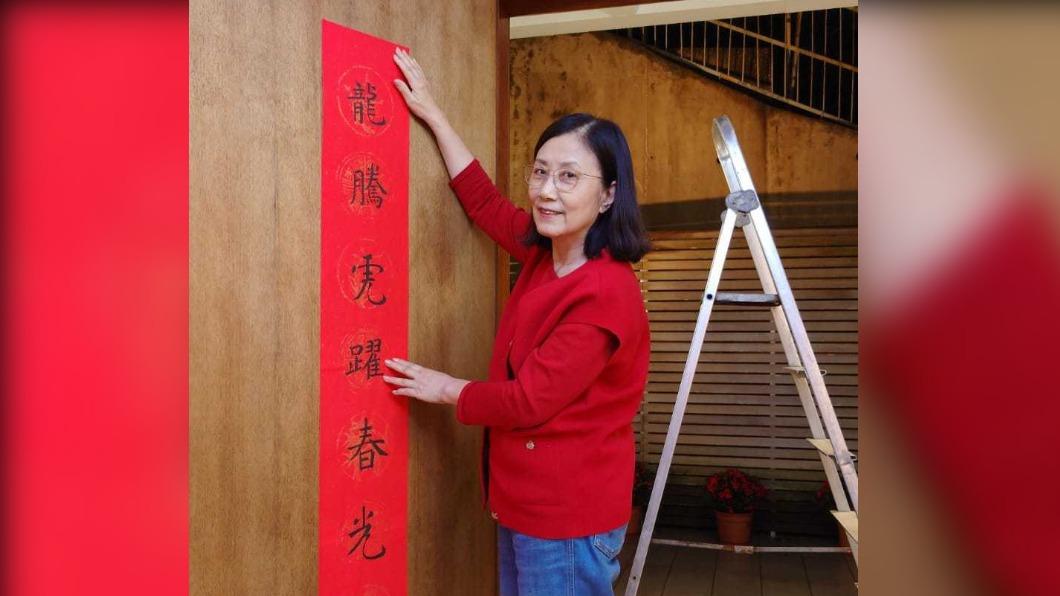 龍騰虎躍春光